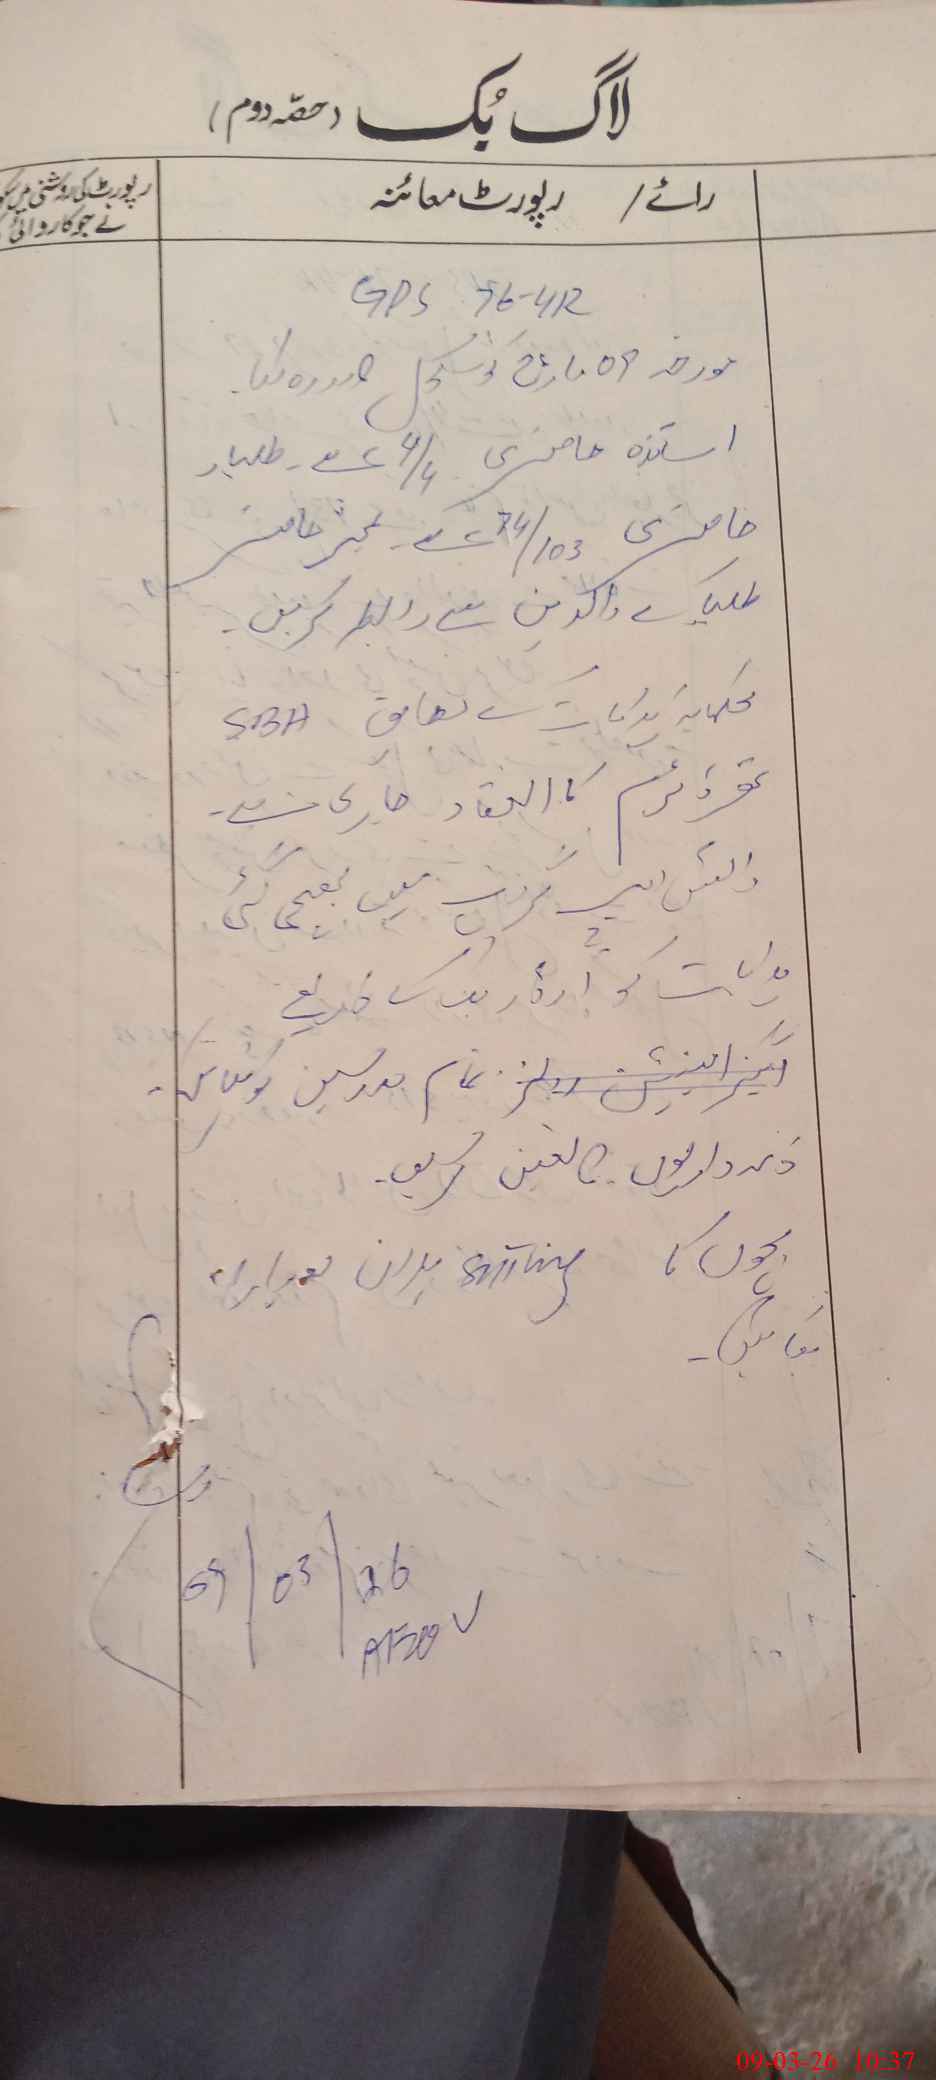 لاگ بُک (حصّہ دوم)
رائے / رپورٹ معائنہ
رپورٹ کی روشنی میں
نے جو کاروائی
GPS 76-4R
مورخہ 09 مارچ کو سکول کا دورہ کیا۔
اساتذہ حاضری 4/4 ہے۔ طلباء
حاضری 74/103 ہے۔ غیر حاضر
طلباء کے والدین سے رابطہ کریں۔
محکمانہ ہدایات کے مطابق SBA
تھرڈ ٹرم کا انعقاد جاری ہے۔
واٹس ایپ گروپ میں بھیجی گئی
ہدایات کو آرڈر بک کے ذریعے
ایگزامینیشن رولز تمام مدرسین کو
ذمہ داریوں کا تعین کریں۔
بچوں کا Sitting پلان
بنائیں۔
09/03/26
AEO
09-03-26 10:37